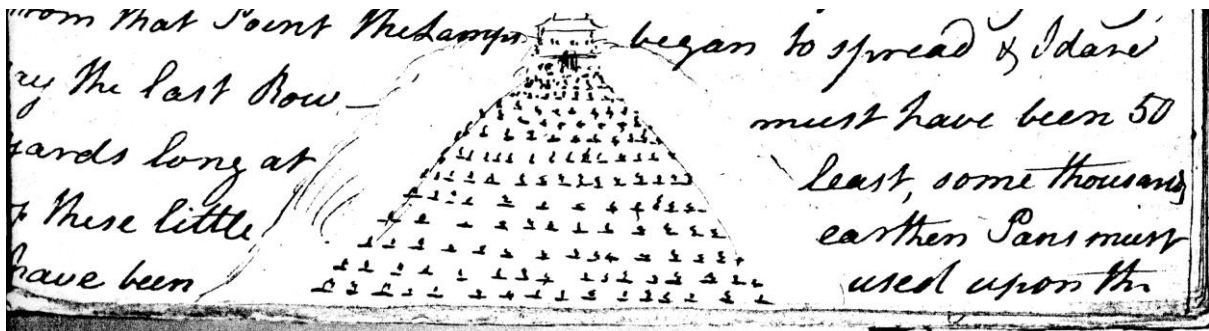 from that Point the Lamps began to spread & I dare
ay the last Row must have been 50
yards long at least, some thousands
of these little earthen Pans must
have been used upon the